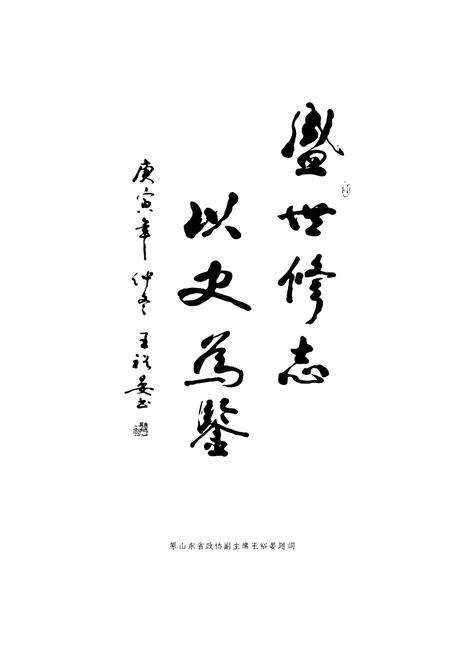 盛世修志
以史为鉴
庚寅年仲冬王裕晏书
原山东省政协副主席王裕晏题词